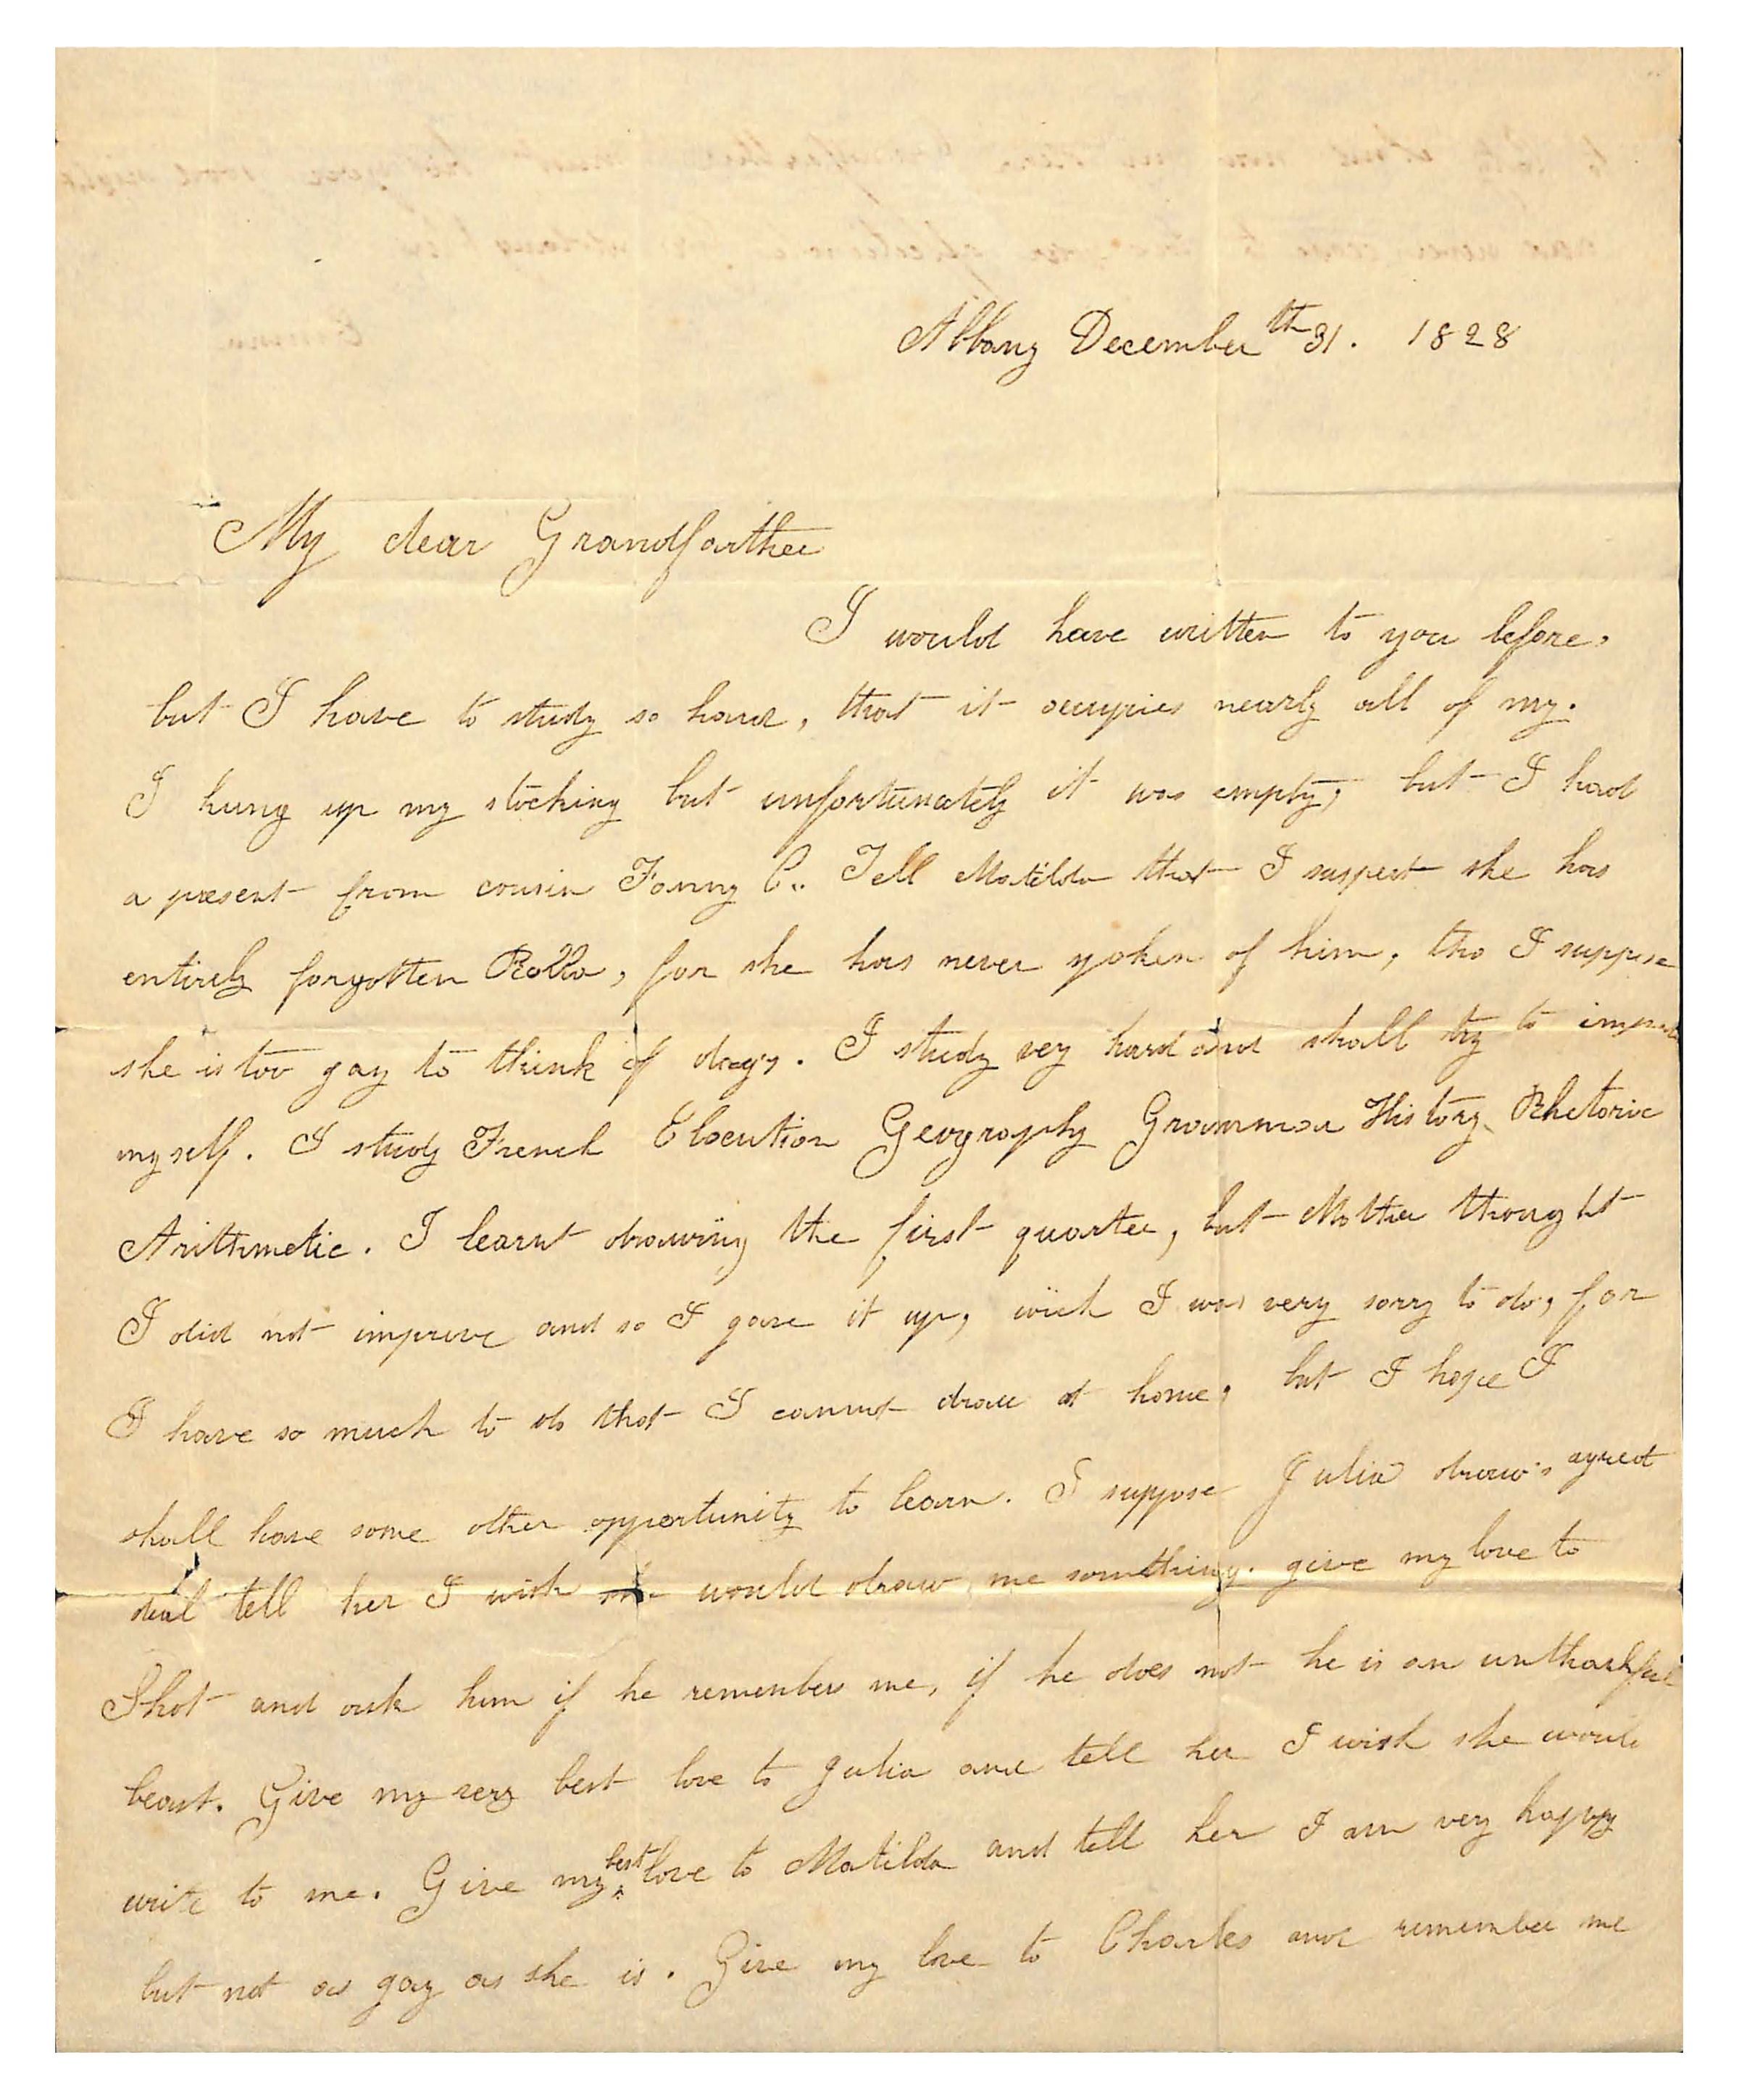 Albany December th 31. 1828
My dear Grandfarther
I would have written to you before,
but I have to study so hard, that it occupies nearly all of my.
I hung up my stocking but unfortunately it was empty, but I had
a present from cousin Fanny C.. Tell Matilda that I suspect she has
entirely forgotten Rollo, for she has never spoken of him, tho I suppose
she is too gay to think of dog's. I study very hard and shall try to
myself. I study French Elocution Geography Grammar History Rhetoric
Arithmetic. I learnt drawing the first quarter, but Mother thought
I did not improve and so I gave it up, wich I was very sorry to do, for
I have so much to do that I cannot draw at home, but I hope I
shall have some other opportunity to learn. I suppose Julia draw's agreat
deal tell her I wish she would draw me something. give my love to
Shot and ask him if he remembers me, if he does not he is an unthankful
beast. Give my very best love to Julia and tell her I wish she would
write to me. Give my best love to Matilda and tell her I am very happy
but not as gay as she is. Give my love to Charles and remember me